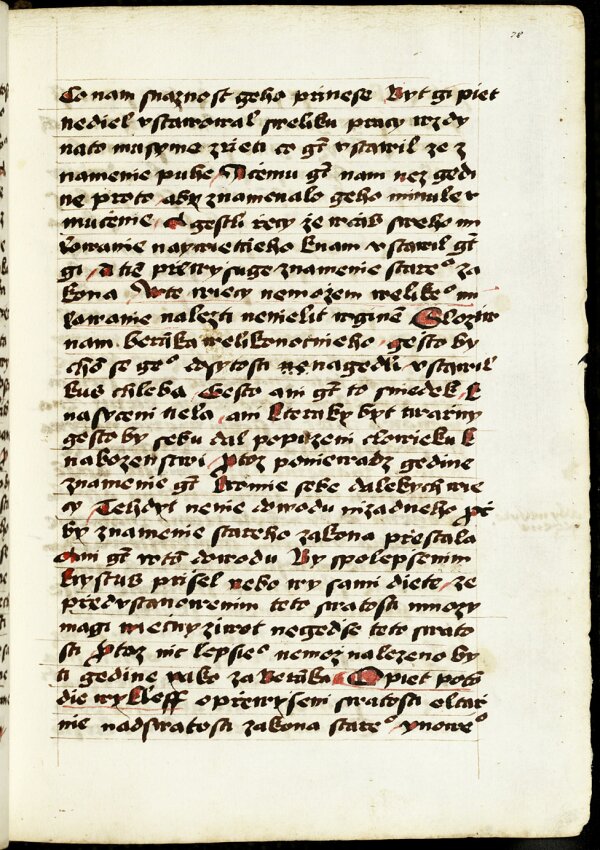 28
Co nam snaznost geho prinese Byt gi piet
nediel vstawowal sweliku pracy wzdy
nato musyme zrieti co gt vstawil ze z
namenie puhe Acemu gt nam nez gedi
ne proto aby znamenalo geho minule v
mucenie A gestli recy ze wais sweho mi
lowanie naywietieho knam vstawil gt
gi A tiem prwny suge znamenie stareo za
kona Acte wiecy nemozem welikeo mi
lowanie nalezti nemelit wginem Slozir
nam beranka welikonotnieho gesto by
chom se geo dosytosti nenagedli vstawil
kus chleba Gesto ani gt to smedek k
nasyceni tiela ani kteraky byt twarny
gesto by seku dal popuzeni clowieku k
nabozenstwi Ptoz poniewadz gedine
znamenie gt kromie sebe dalekych wie
cy Tehdyt nenie dowodu nizadneho pt
by znamenie stareho zakona prestala
Ani gt wtom dowodu By spolepsenim
krystus prisel nebo wy sami diete ze
predystanowenim teto swatosti mnozy
magi wiecny ziwot negedsie teto swato
sti Ptoz nic lepsieo nemoz nalezeno by
ti gedine yako za beranka Opiet pots
die wykleff oprewyseni swatosti oltar
nie nadswatosti zakona stareo ynoweo